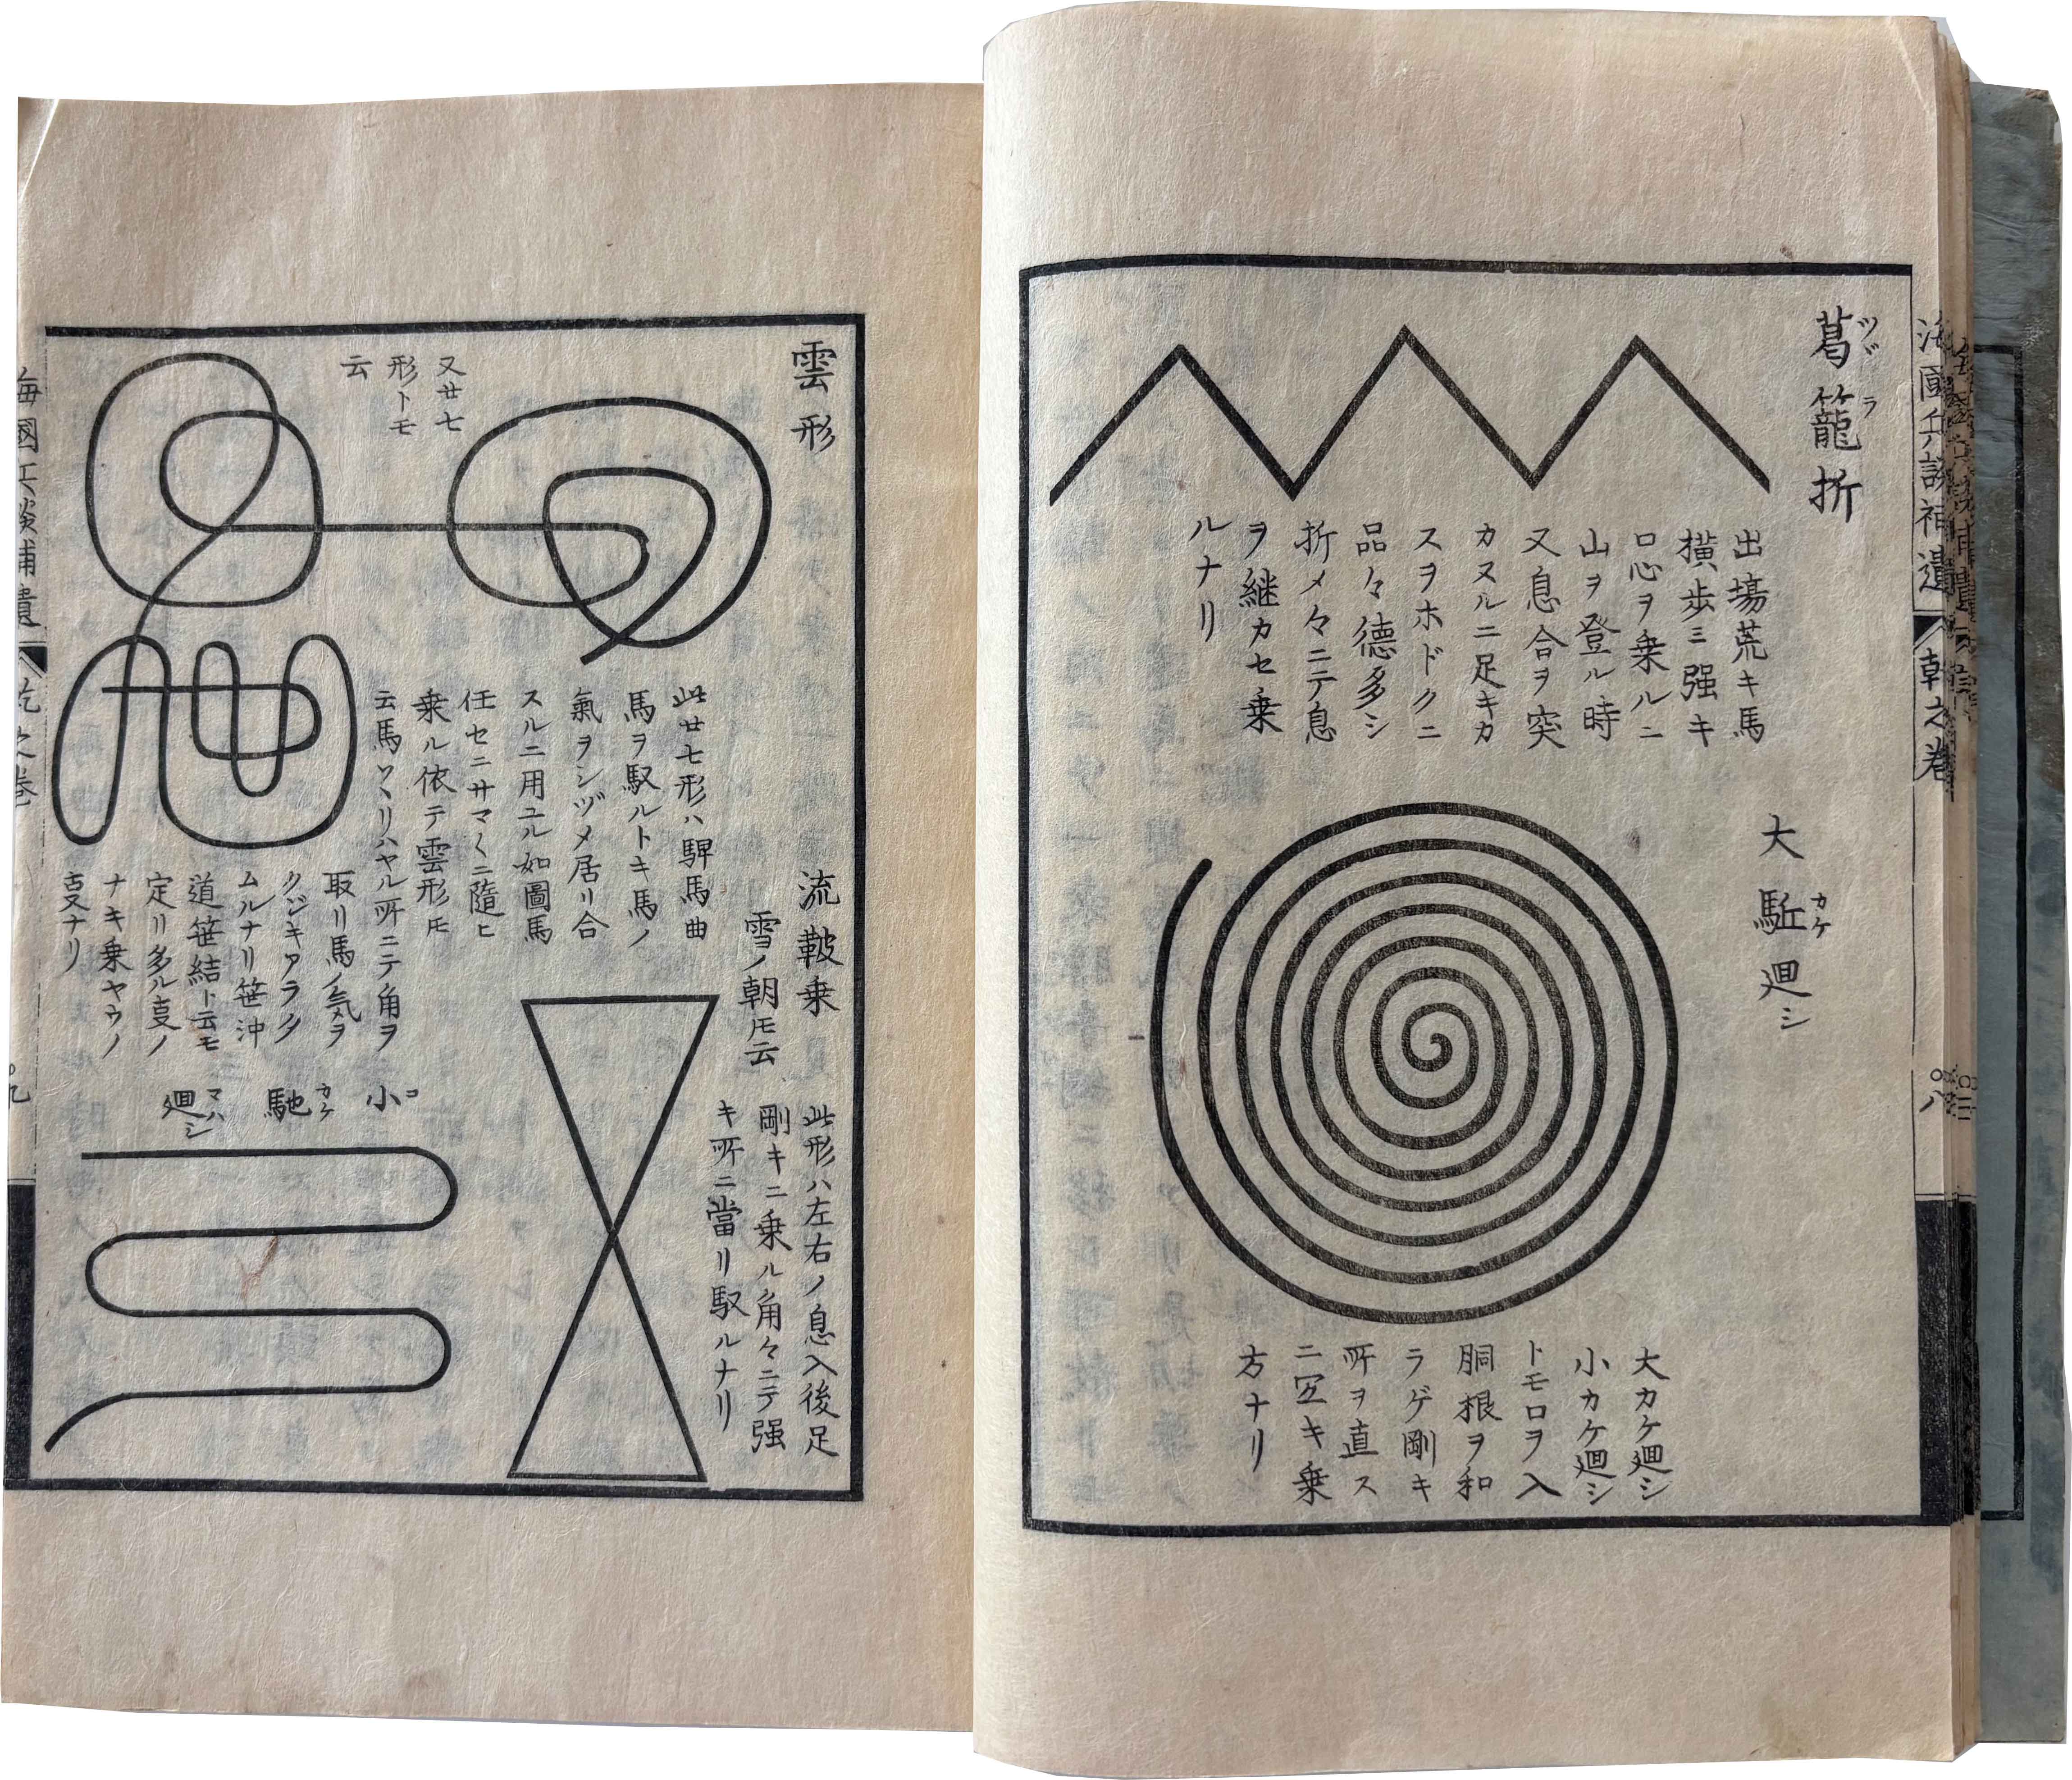 葛籠折
ツヾラ
出塲荒キ馬
横歩ミ强キ
口心ヲ乗ルニ
山ヲ登ル時
又息合ヲ突
カヌルニ足キカ
スヲホドクニ
品々徳多シ
折メ々ニテ息
ヲ継カセ乗
ルナリ
大駈廻シ
カケ
大カケ廻シ
小カケ廻シ
トモロヲ入
胴根ヲ和
ラゲ剛キ
所ヲ直ス
ニ冝キ乗
方ナリ
海國兵談補遺
乾之巻
八
雲形
又廿七
形トモ
云
此廿七形ハ騂馬曲
馬ヲ馭ルトキ馬ノ
氣ヲシヅメ居リ合
スルニ用ユル如圖馬
任セニサマ〱ニ隨ヒ
乗ル依テ雲形ㇳモ
云馬ワヽリハヤル所ニテ角ヲ
取リ馬ノ気ヲ
クジキアラタ
ムルナリ笹沖
道笹結ト云モ
定リ多ル㕝ノ
ナキ乗ヤウノ
㕝ナリ
流鞁乗
雪ノ朝ㇳモ云
此形ハ左右ノ息入後足
剛キニ乗ル角々ニテ强
キ所ニ當リ馭ルナリ
小馳廻シ
コ カケ マハシ
海國兵談補遺
乾之巻
九